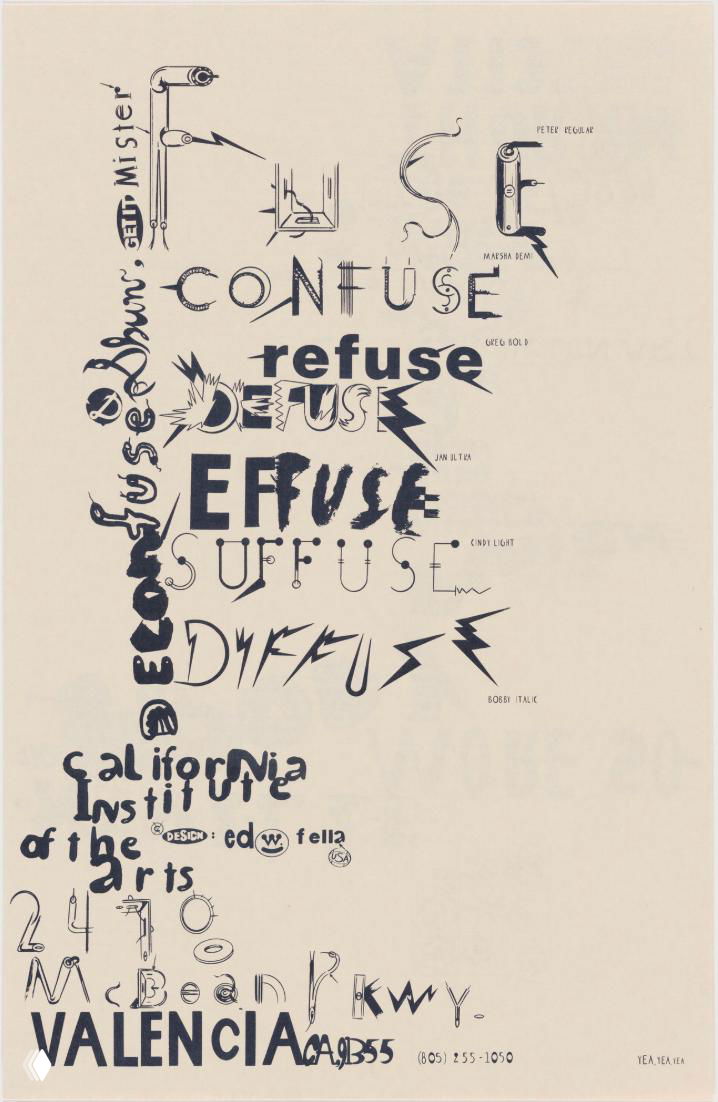 Fuse
PETER REGULAR
MARSHA DEMI
CONFUSE
GREG BOLD
refuse
DEFUSE
JAN ULTRA
EFFUSE
CINDY LIGHT
SUFFUSE
DIFFUSE
BOBBY ITALIC
Mister
DECONfused
California
Institute
of the
arts
DESIGN: ed w. fella
USA
24700
McBean Pkwy.
VALENCIA CA, 91355 (805) 255-1050
YEA, YEA, YEA